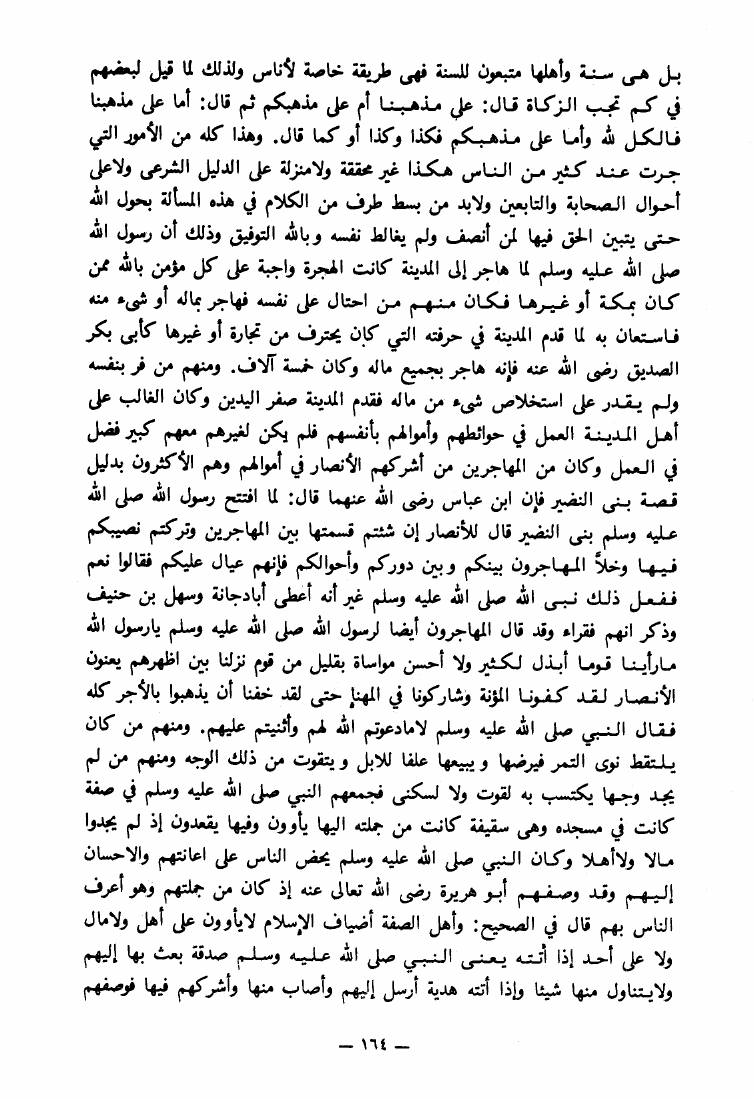 بل هى سنة وأهلها متبعون للسنة فهى طريقة خاصة لأناس ولذلك لما قيل لبعضهم
في كم تجب الزكاة قال: على مذهبنا أم على مذهبكم ثم قال: أما على مذهبنا
فالكل لله وأما على مذهبكم فكذا وكذا أو كما قال. وهذا كله من الأمور التي
جرت عند كثير من الناس هكذا غير محققة ولامنزلة على الدليل الشرعى ولاعلى
أحوال الصحابة والتابعين ولابد من بسط طرف من الكلام في هذه المسألة بحول الله
حتى يتبين الحق فيها لمن أنصف ولم يغالط نفسه وبالله التوفيق وذلك أن رسول الله
صلى الله عليه وسلم لما هاجر إلى المدينة كانت الهجرة واجبة على كل مؤمن بالله ممن
كان بمكة أو غيرها فكان منهم من احتال على نفسه فهاجر بماله أو شىء منه
فاستعان به لما قدم المدينة في حرفته التي كان يحترف من تجارة أو غيرها كأبى بكر
الصديق رضى الله عنه فإنه هاجر بجميع ماله وكان خمسة آلاف. ومنهم من فر بنفسه
ولم يقدر على استخلاص شىء من ماله فقدم المدينة صفر اليدين وكان الغالب على
أهل المدينة العمل في حوائطهم وأموالهم بأنفسهم فلم يكن لغيرهم معهم كبير فضل
في العمل وكان من المهاجرين من أشركهم الأنصار في أموالهم وهم الأكثرون بدليل
قصة بنى النضير فإن ابن عباس رضى الله عنهما قال: لما افتتح رسول الله صلى الله
عليه وسلم بنى النضير قال للأنصار إن شئتم قسمتها بين المهاجرين وتركتم نصيبكم
فيها وخلاً المهاجرون بينكم وبين دوركم وأحوالكم فإنهم عيال عليكم فقالوا نعم
ففعل ذلك نبى الله صلى الله عليه وسلم غير أنه أعطى أبادجانة وسهل بن حنيف
وذكر انهم فقراء وقد قال المهاجرون أيضا لرسول الله صلى الله عليه وسلم يارسول الله
مارأينا قوما أبذل لكثير ولا أحسن مواساة بقليل من قوم نزلنا بين اظهرهم يعنون
الأنصار لقد كفونا المؤنة وشاركونا في المهنإ حتى لقد خفنا أن يذهبوا بالأجر كله
فقال النبي صلى الله عليه وسلم لامادعوتم الله لهم وأثنيتم عليهم. ومنهم من كان
يلتقط نوى التمر فيرضها ويبيعها علفا للابل ويتقوت من ذلك الوجه ومنهم من لم
يجد وجها يكتسب به لقوت ولا لسكنى فجمعهم النبي صلى الله عليه وسلم في صفة
كانت في مسجده وهى سقيفة كانت من جملته اليها يأوون وفيها يقعدون إذ لم يجدوا
مالا ولاأهلا وكان النبي صلى الله عليه وسلم يحض الناس على اعانتهم والاحسان
إليهم وقد وصفهم أبو هريرة رضى الله تعالى عنه إذ كان من جملتهم وهو أعرف
الناس بهم قال في الصحيح: وأهل الصفة أضياف الإسلام لايأوون على أهل ولامال
ولا على أحد إذا أتته يعنى النبي صلى الله عليه وسلم صدقة بعث بها إليهم
ولايتناول منها شيئا وإذا أتته هدية أرسل إليهم وأصاب منها وأشركهم فيها فوصفهم
— ١٦٤ —